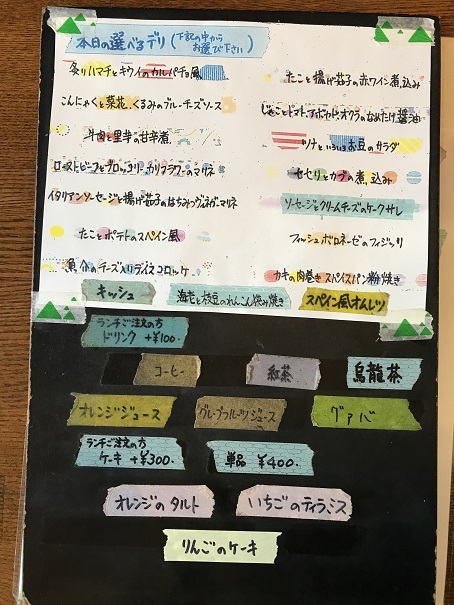 本日の選べるデリ(下記の中から
お選び下さい)
炙りハマチとキウイのカルパチョ風
こんにゃくと菜花、くるみのブルーチーズソース
牛肉と里芋の甘辛煮
ローストビーフとブロッコリー、カリフラワーのマリネ
イタリアンソーセージと揚げ茄子のはちみつヴィネガーマリネ
たことポテトのスペイン風
魚介のチーズ入りライスコロッケ
たこと揚げ茄子の赤ワイン煮込み
じゃことトマト、アボカド、オクラのなめたけ醤油
ツナといろいろお豆のサラダ
セセリとカブの煮込み
ソーセージとクリームチーズのケークサレ
フィッシュボロネーゼのフィジッリ
カキの肉巻きスパイスパン粉焼き
キッシュ
海老と枝豆のれんこん挟み焼き
スペイン風オムレツ
ランチご注文の方
ドリンク +¥100.
コーヒー
紅茶
烏龍茶
オレンジジュース
グレープフルーツジュース
グァバ
ランチご注文の方
ケーキ +¥300.
単品 ¥400.
オレンジのタルト
いちごのティラミス
りんごのケーキ